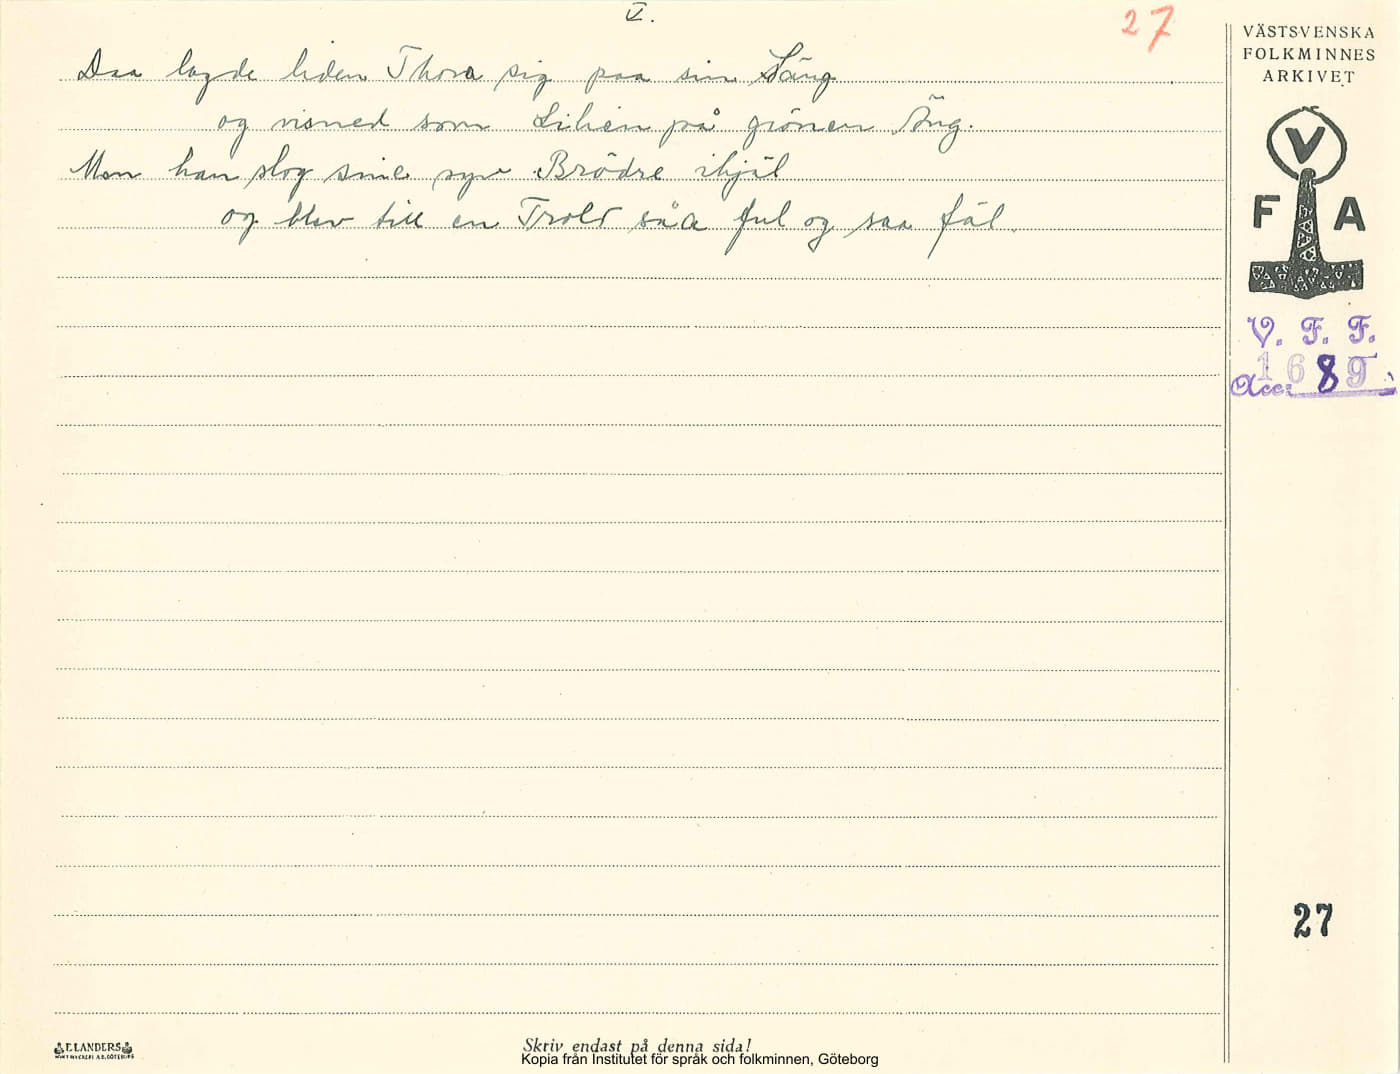 V.
27
Daa lagde liden Thora sig paa sin Säng
og visned som Lilien på grönen Äng.
Men han slog sine syv Brödre ihjäl
og blev till en Trold såa ful og saa fäl.
VÄSTSVENSKA
FOLKMINNES
ARKIVET
V
F A
V. F. F.
Acc: 1689
27
ELANDERS
Skriv endast på denna sida!
Kopia från Institutet för språk och folkminnen, Göteborg